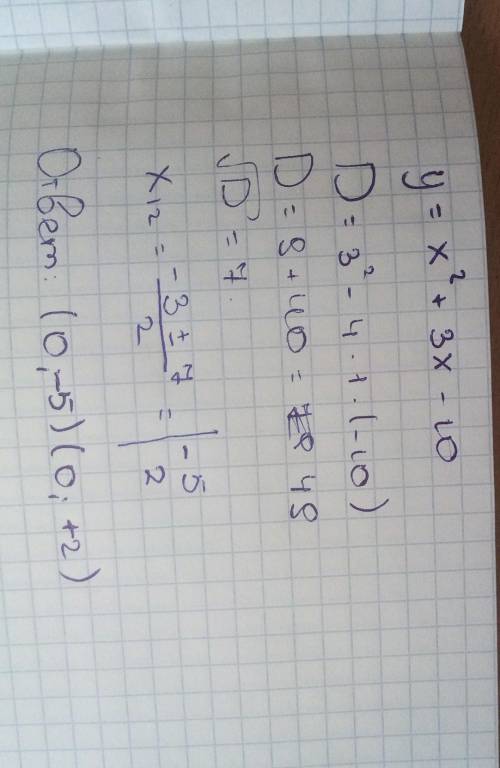 y = x² + 3x - 10
D = 3² - 4 · 1 · (-10)
D = 9 + 40 = 49
√D = 7.
x₁₂ = (-3 ± 7)/2 = | -5 2
Ответ: (0; -5) (0; +2)